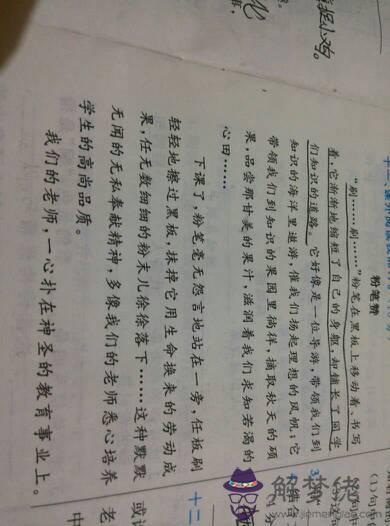 捉小鸡。
粉笔赞
“刷……刷……”粉笔在黑板上移动着、书写
着,它渐渐地缩短了自己的身躯,却铺长了同学
们知识的道路。它好像是一位导游,带领我们到
知识的海洋里遨游,催我们扬起理想的风帆;它
带领我们到知识的果园里徜徉,摘取秋天的硕
果,品尝那甘美的果汁,滋润着我们求知若渴的
心田……
下课了,粉笔毫无怨言地站在一旁,任板刷
轻轻地擦过黑板,抹掉它用生命换来的劳动成
果,任无数细细的粉末儿徐徐落下……这种默默
无闻的无私奉献精神,多像我们的老师悉心培养
学生的高尚品质。
我们的老师,一心扑在神圣的教育事业上。
十二
老
中